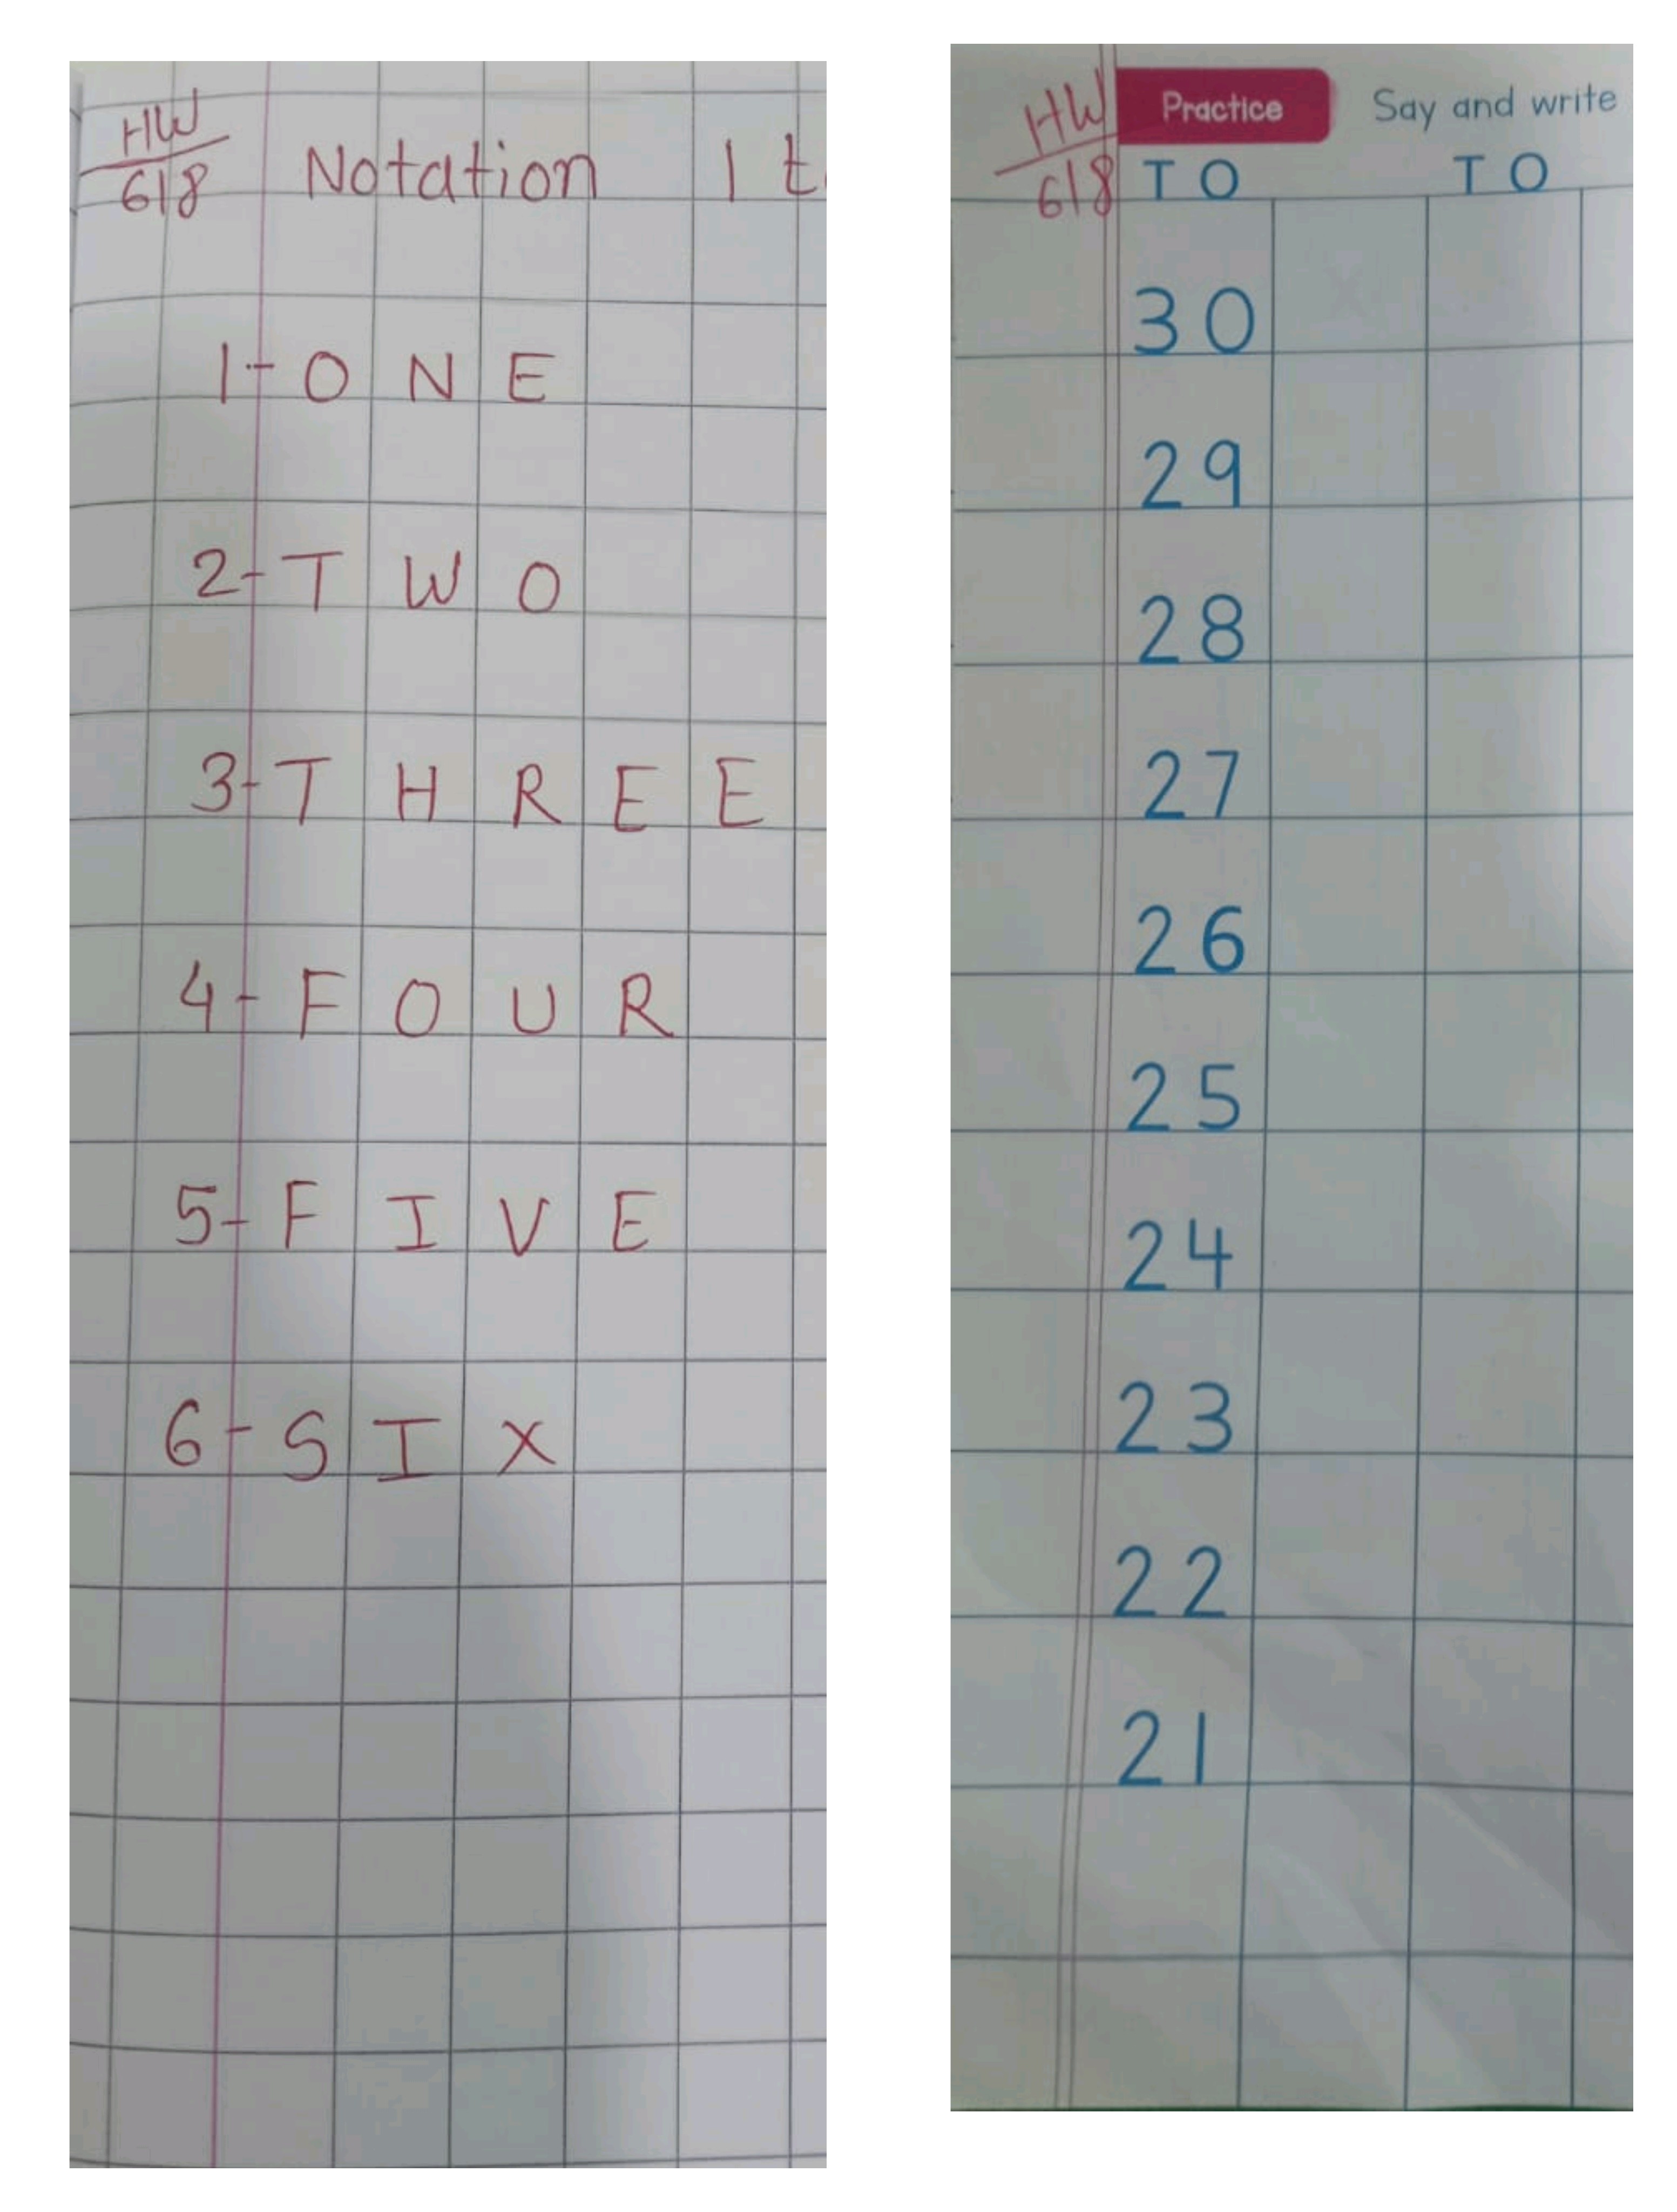 HW
6/8 Notation 1 t
1-ONE
2-TWO
3-THREE
4-FOUR
5-FIVE
6-SIX
HW
6/8
Practice Say and write
TO TO
30
29
28
27
26
25
24
23
22
21